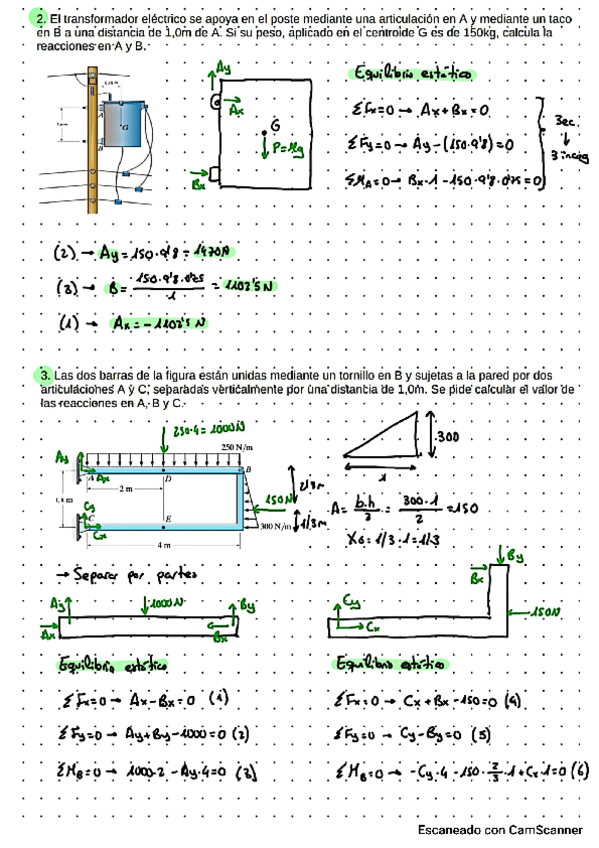 2. El transformador eléctrico se apoya en el poste mediante una articulación en A y mediante un taco
en B a una distancia de 1,0m de A. Si su peso, aplicado en el centroide G es de 150kg, calcula la
reacciones en A y B.
Ay
Equilibrio estático
Ax
ΣFx=0 → Ax+Bx=0
G
P=Mg
ΣFy=0 → Ay-(150·9'8)=0
3 ec.
↓
3 incog
Bx
ΣMA=0 → Bx·1-150·9'8·0'75=0
A
G
B
(2) → Ay=150·9'8=1470N
(3) → B= 150·9'8·0'75 / 1 = 1102'5 N
(1) → Ax=-1102'5 N
3. Las dos barras de la figura están unidas mediante un tornillo en B y sujetas a la pared por dos
articulaciones A y C, separadas verticalmente por una distancia de 1,0m. Se pide calcular el valor de
las reacciones en A, B y C.
250·4=1000N
250 N/m
300
1
Ay
A
Ax
D
B
2 m
2/3m
150N
Cy
C
Cx
E
300 N/m
1/3m
4 m
A= b·h / 2 = 300·1 / 2 =150
XG=1/3·1=1/3
→ Separar por partes
Ay
1000N
By
Ax
Bx
By
Bx
Cy
Cx
150N
Equilibrio estático
ΣFx=0 → Ax-Bx=0 (1)
ΣFy=0 → Ay+By-1000=0 (2)
ΣMB=0 → 1000·2-Ay·4=0 (3)
Equilibrio estático
ΣFx=0 → Cx+Bx-150=0 (4)
ΣFy=0 → Cy-By=0 (5)
ΣMB=0 → -Cy·4-150·2/3·1+Cx·1=0 (6)
Escaneado con CamScanner